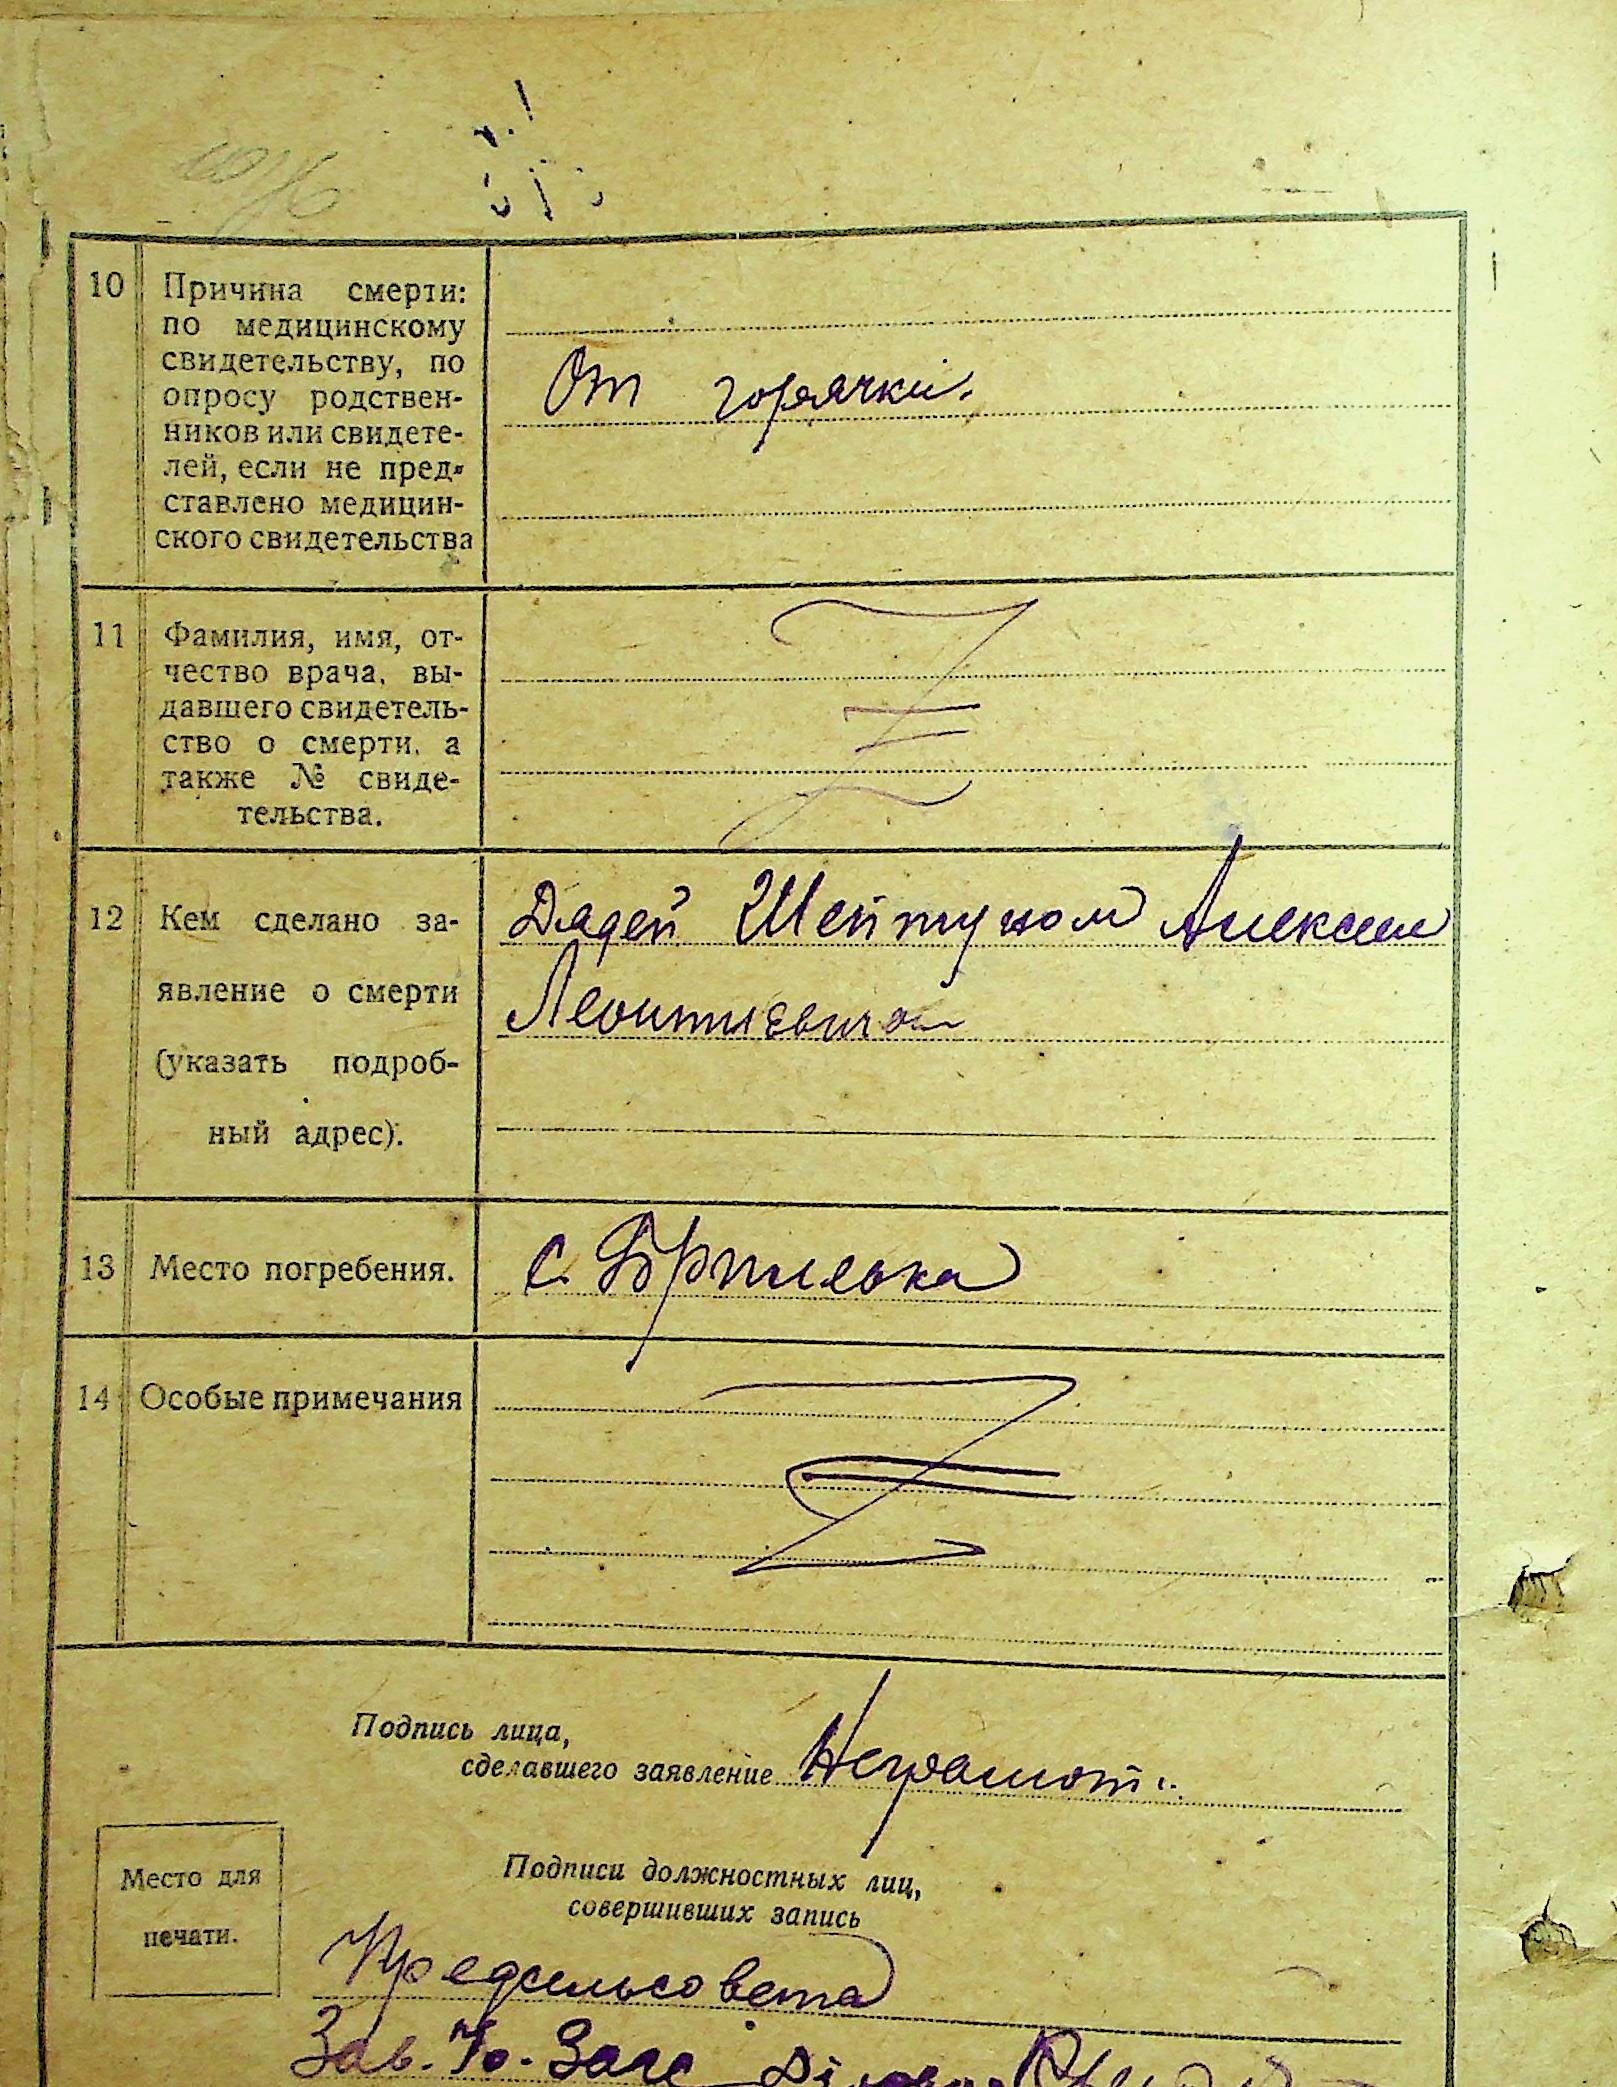 10 Причина смерти:
по медицинскому
свидетельству, по
опросу родствен-
ников или свидете-
лей, если не пред-
ставлено медицин-
ского свидетельства
От горячки.
11 Фамилия, имя, от-
чество врача, вы-
давшего свидетель-
ство о смерти, а
также № свиде-
тельства.
12 Кем сделано за-
явление о смерти
(указать подроб-
ный адрес).
Дядей Шейтуном Алексеем
Леонтиевичом
13 Место погребения.
с.
14 Особые примечания
Подпись лица,
сделавшего заявление Неграмотн.
Место для
печати.
Подписи должностных лиц,
совершивших запись
Предсельсовета
Зав. Загс